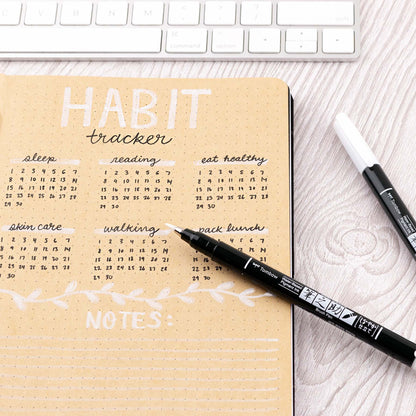 control
option
command
HABIT
tracker
sleep
reading
eat healthy
1 2 3 4 5 6 7
1 2 3 4 5 6 7
1 2 3 4 5 6 7
8 9 10 11 12 13 14
8 9 10 11 12 13 14
8 9 10 11 12 13 14
15 16 17 18 19 20 21
15 16 17 18 19 20 21
15 16 17 18 19 20 21
22 23 24 25 26 27 28
22 23 24 25 26 27 28
22 23 24 25 26 27 28
29 30
29 30
29 30
skin care
walking
pack lunch
1 2 3 4 5 6 7
1 2 3 4 5 6 7
8 9 10 11 12 13 14
8 9 10 11 12 13 14
15 16 17 18 19 20 21
15 16 17 18 19 20 21
22 23 24 25 26 27 28
22 23 24 25 26 27 28
29 30
29 30
29 30
NOTES:
Tombow
筆之助